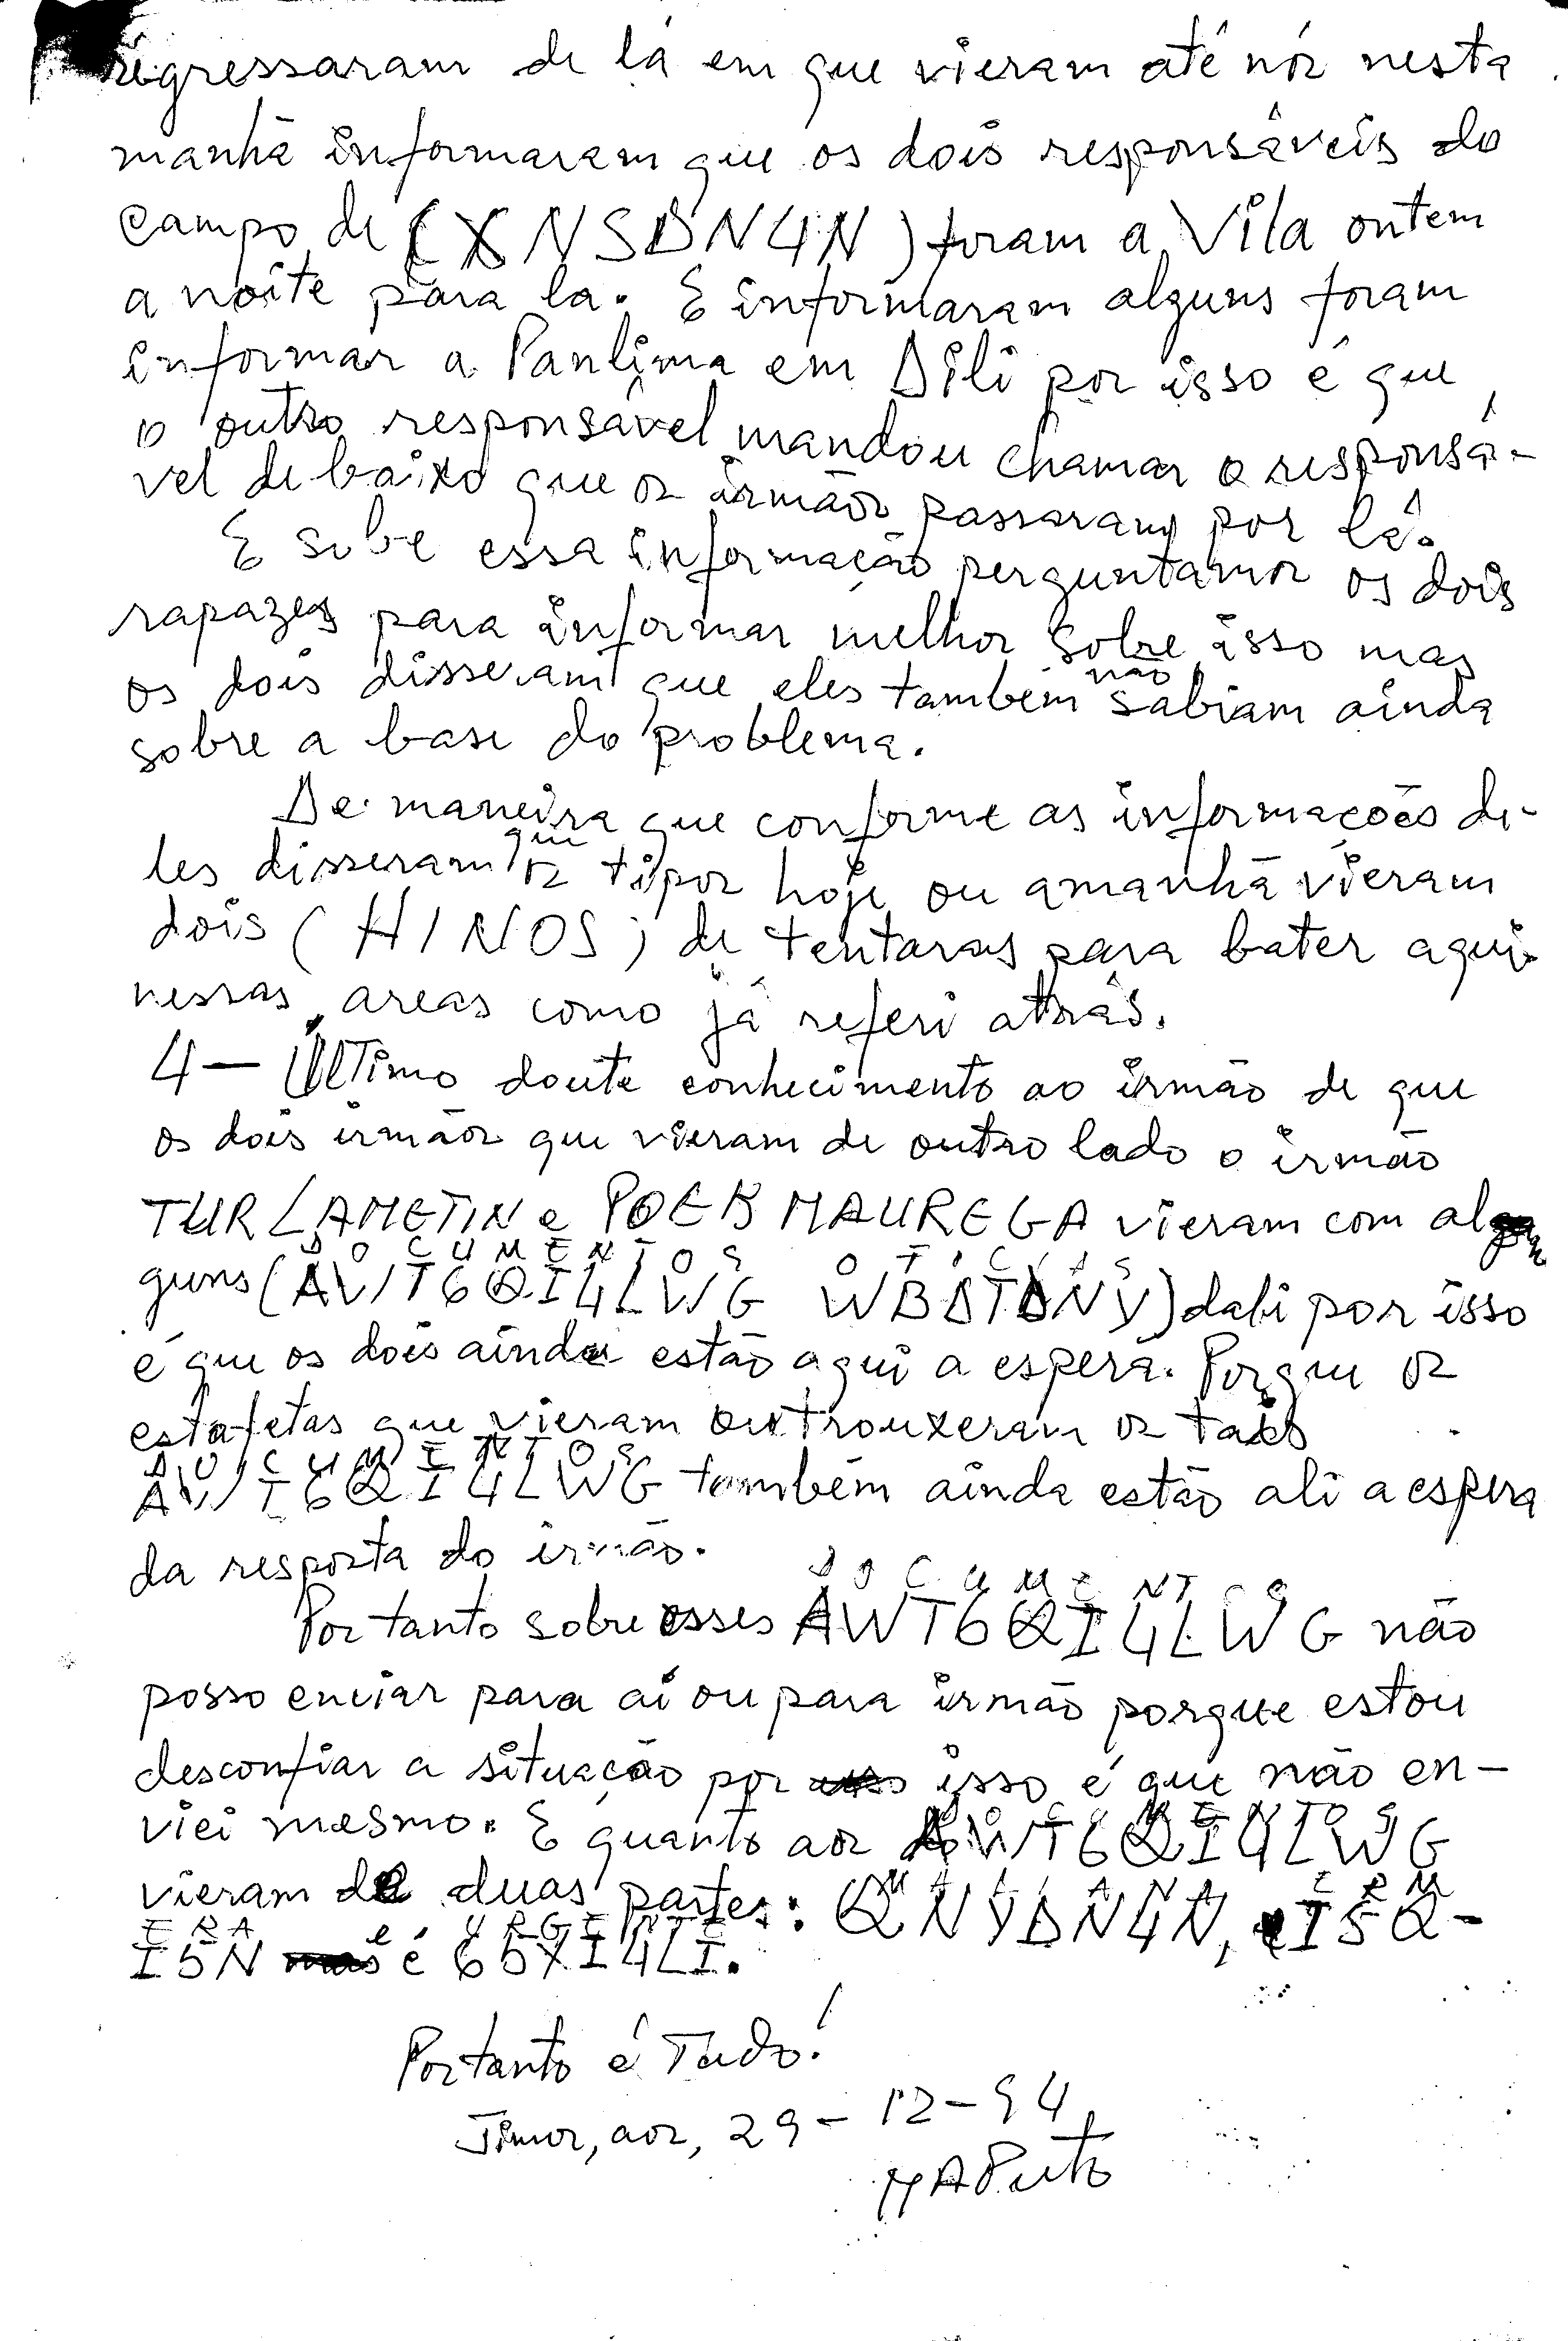 regressaram de lá em que vieram até nós nesta
manhã informaram que os dois responsáveis do
campo de (XNSDN4N) foram a Vila ontem
a noite para la. E informaram alguns foram
informar a Panlima em Dili por isso é que
o outro responsável mandou chamar o responsá-
vel de baixo que os irmãos passaram por lá.
E sobe essa informação perguntamos os dois
rapazes para informar melhor sobre isso mas
os dois disseram que eles também não sabiam ainda
sobre a base do problema.
De maneira que conforme as informações de-
les disseram que os tipos hoje ou amanhã vieram
dois (HINOS) de tentaras para bater aqui
nessas areas como já referi atrás.
4 — Último doute conhecimento ao irmão de que
os dois irmãos que vieram de outro lado o irmão
TUR LAMETIN e POEK MAUREGA vieram com al
D O C U M E N T O S O T I C I A S
guns (AWT6QI4LWG WBDTDNY) dali por isso
é que os dois ainda estão aqui a espera. Porque os
estafetas que vieram ou trouxeram os tais
D O C U M E N T O S
AWT6QI4LWG também ainda estão ali a espera
da resposta do irmão.
D O C U M E N T O S
Portanto sobre esses AWT6QI4LWG não
posso enviar para aí ou para irmão porque estou
desconfiar a situação por isso é que não en-
viei mesmo. E quanto aos AWT6QI4LWG
D O C U M E N T O S
vieram de duas partes: QNYDN4N, e I5Q-
M A L I A N A E R M
I5N é 65XI4LI.
E R A e U R G E N T E
Portanto é Tudo!
Timor, aos, 29-12-94
MAPuto